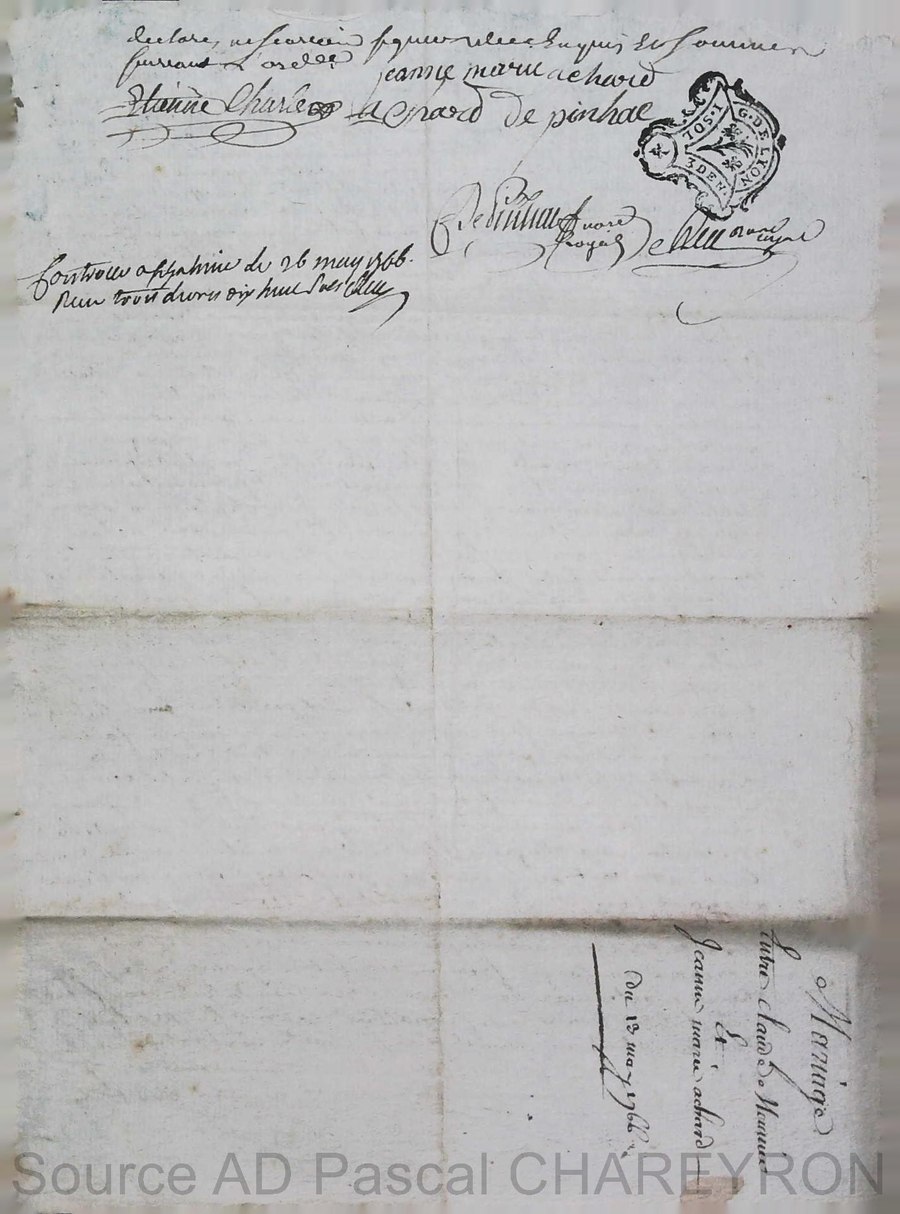 declaré ne scavoir signer de ce Enquis Et sommés
suivant L'ord.ce
jeanne marie achard
Etienne Charle
achard de pinhac
G. DE LYON
1 OS. I
3 DEN.
De Pinhac
royal
Controllé a 26 may 1766.
Reçu trois livres dix huit sols
Mariage
Entre claude
Et
Jeanne marie achard
du 13 may 1766
Source AD Pascal CHAREYRON